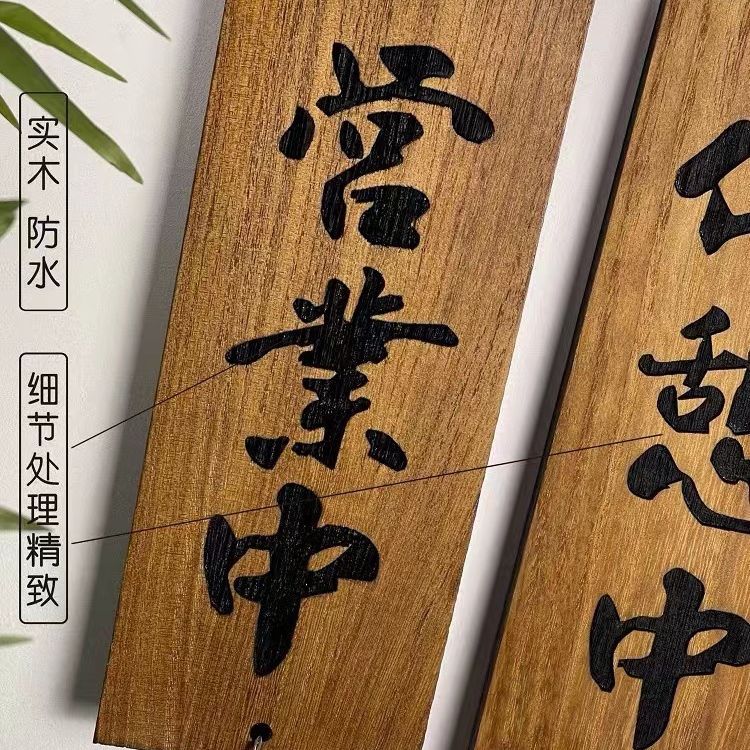 实木 防水
细节处理精致
営業中
憩中